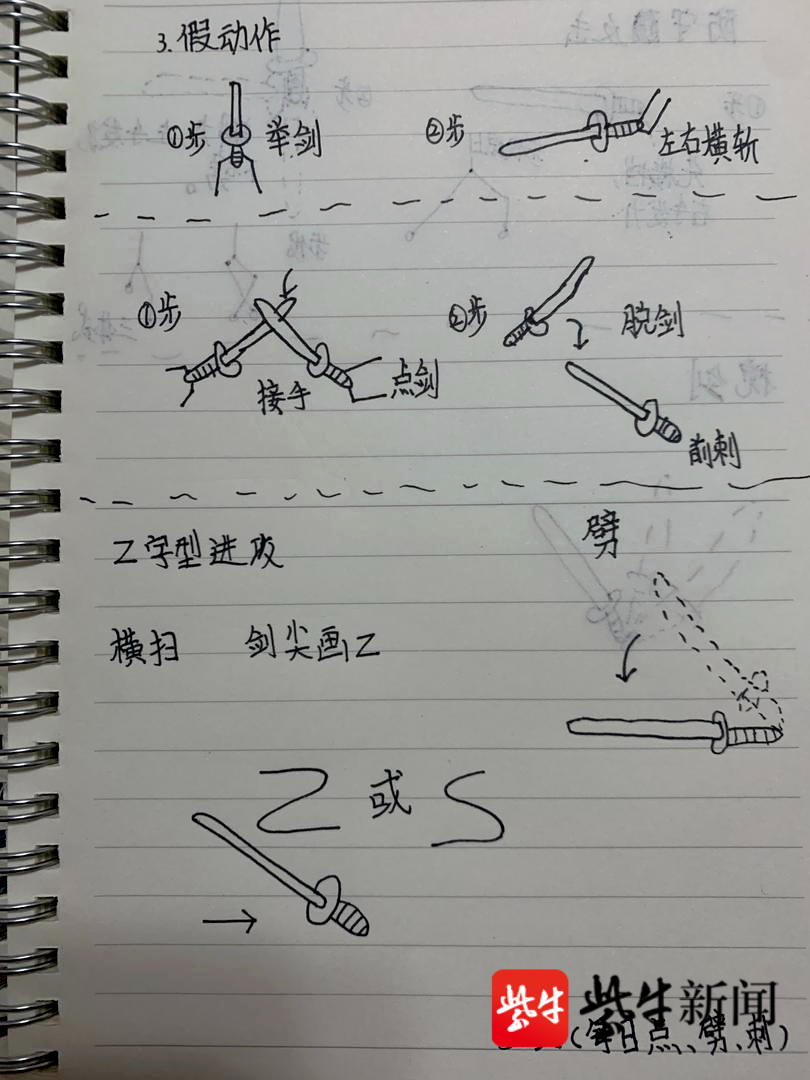 3.假动作
①步 举剑 ②步 左右横斩
①步 接手 点剑 ②步 脱剑
削刺
Z字型进攻 劈
横扫 剑尖画Z
Z或S
紫牛 紫牛新闻
(每日点、劈、刺)